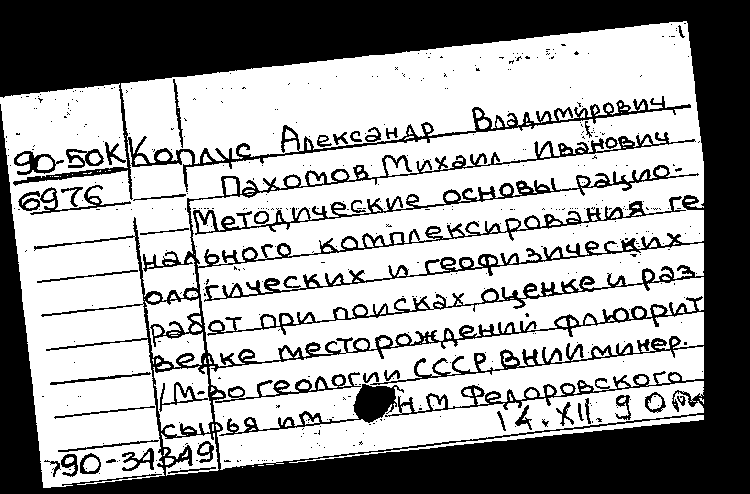 90-50К Корлус, Александр Владимирович,
6976 Пахомов, Михаил Иванович
Методические основы рацио-
нального комплексирования ге
ологических и геофизических
работ при поисках, оценке и раз
ведке месторождений флюорит
/М-во геологии СССР, ВНИИ минер.
сырья им. Н.М Федоровского
14.XII.90
90-34349